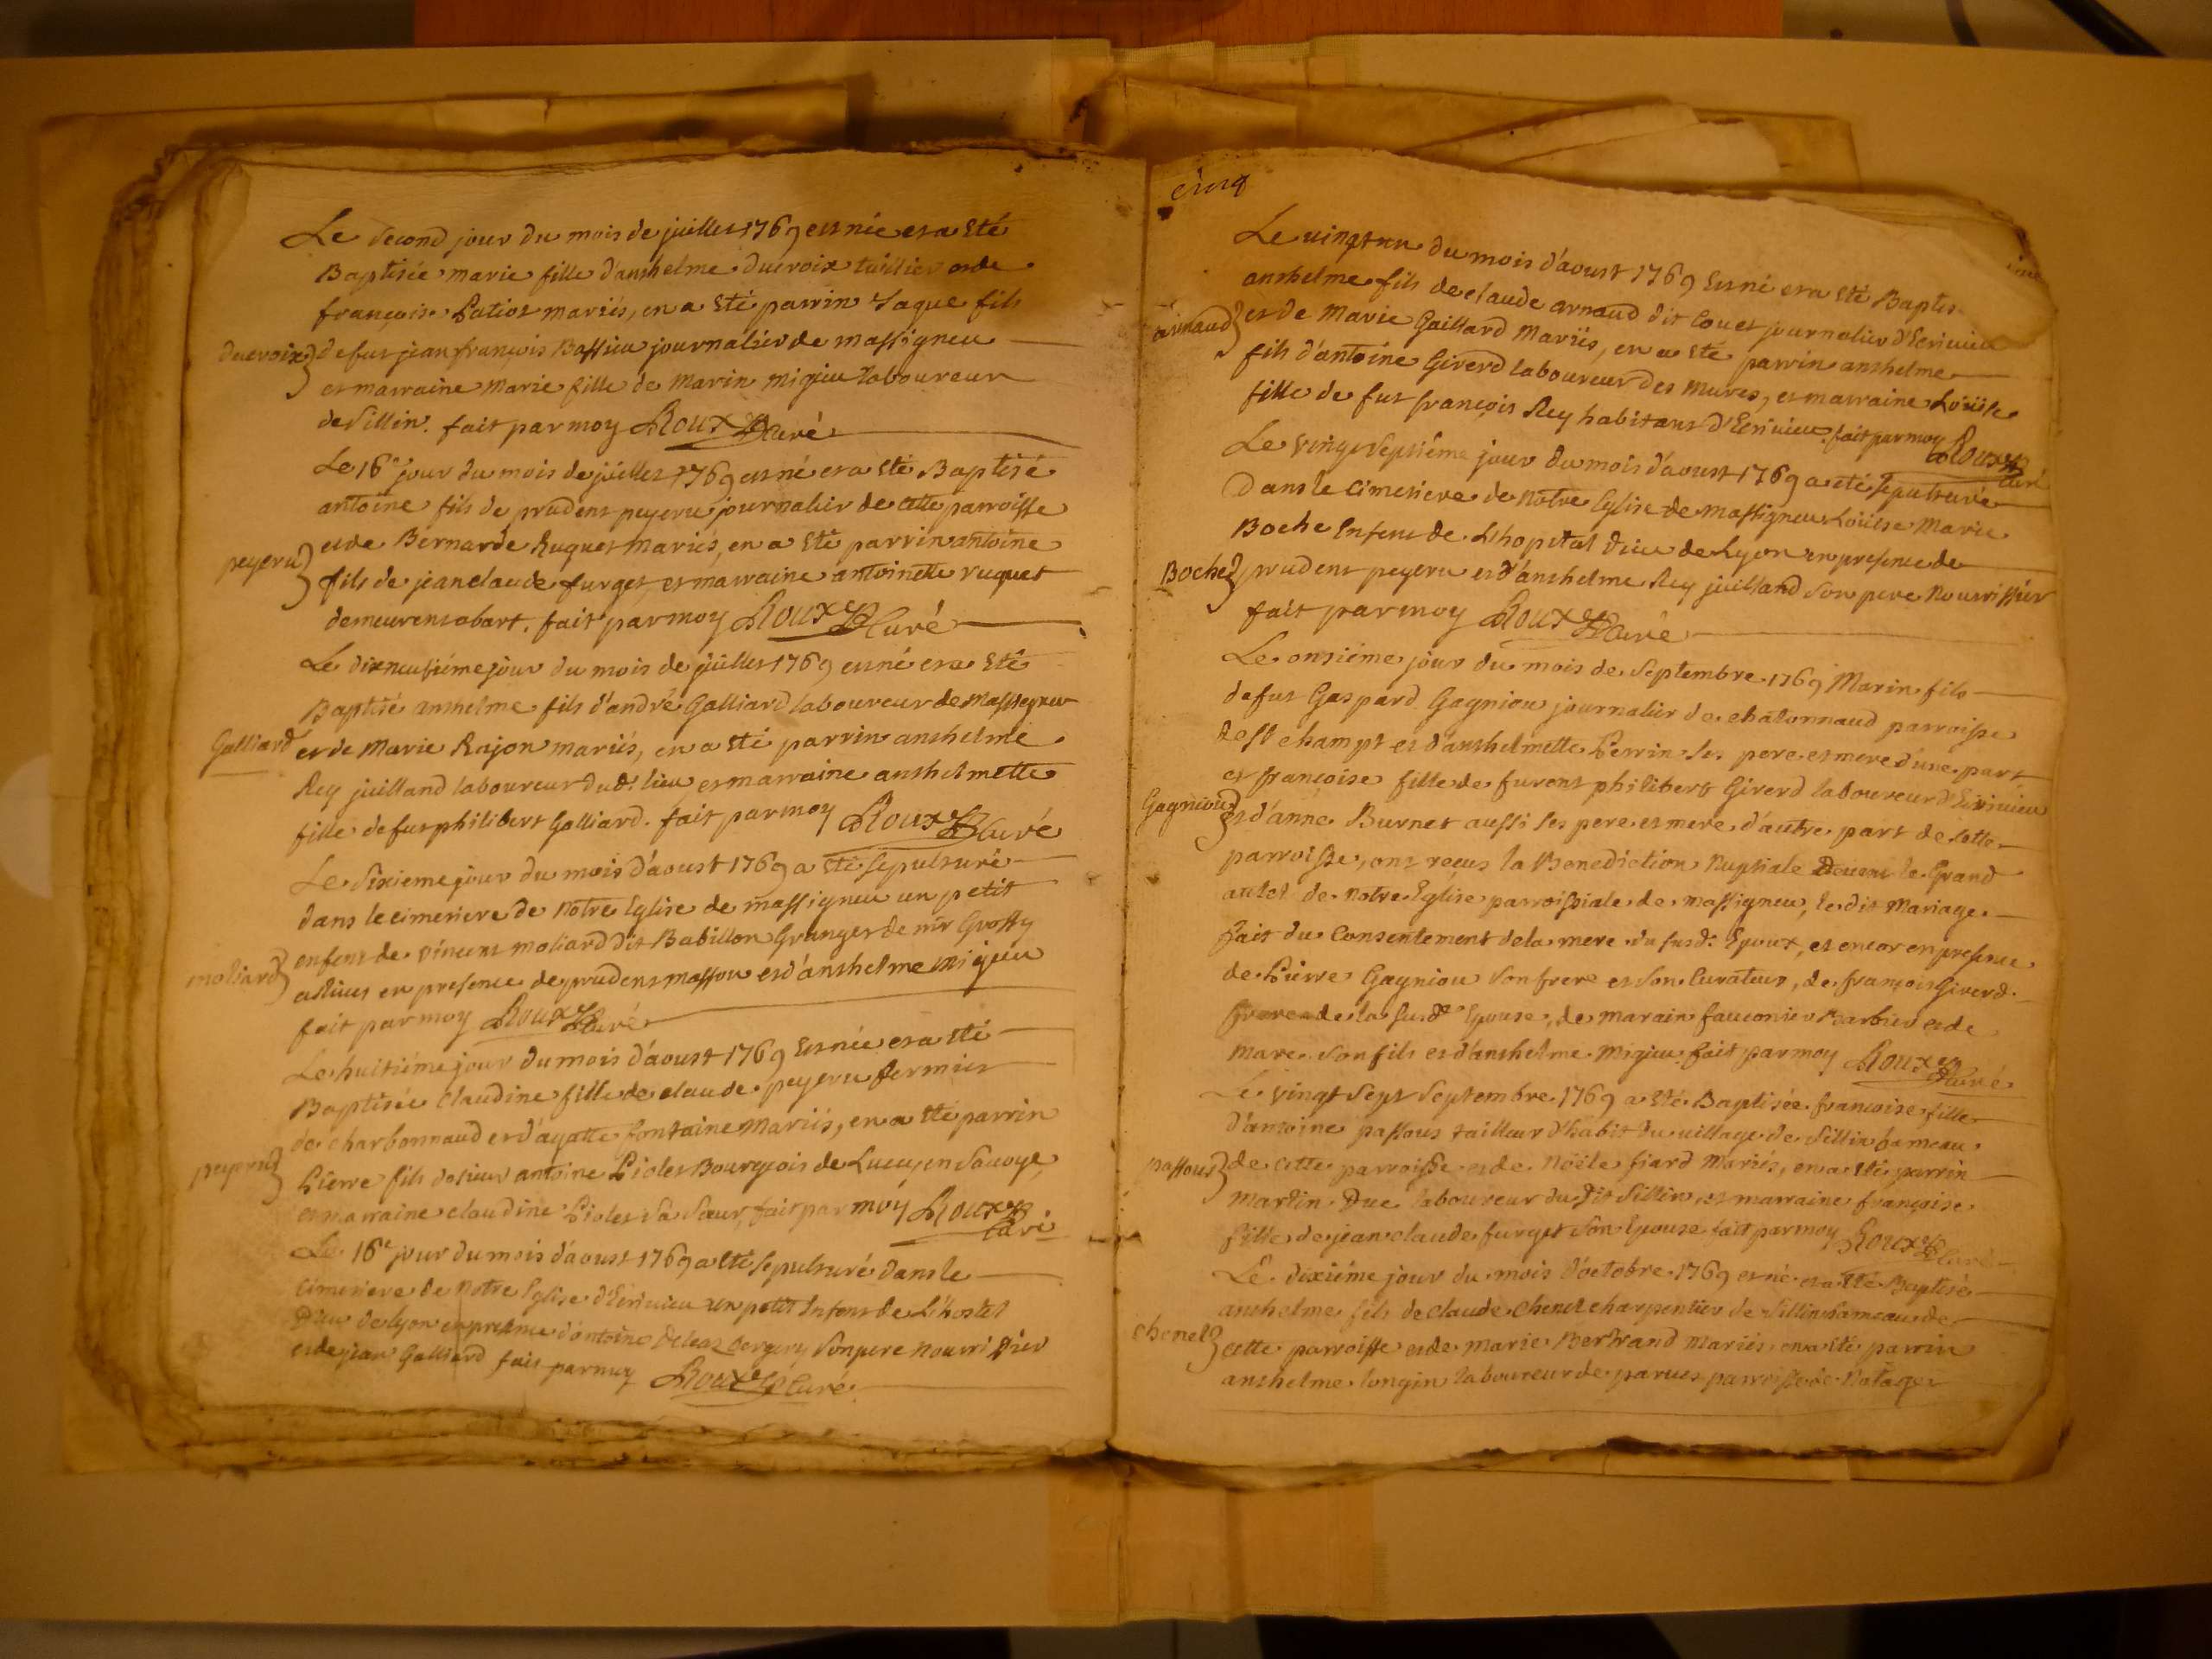 Le second jour du mois de juillet 1769 est née et a eté
Baptisée marie fille d'anthelme ducroix tuillier et de
françoise Patiot mariés, en a eté parrin Jaque fils
ducroix de fut jean françois Bassieu journalier de massigneu
et marraine Marie fille de Marin migieu laboureur
de Sillin. fait par moy Roux Curé
Le 16e jour du mois de juillet 1769 est né et a eté Baptisé
antoine fils de prudent peyeru journalier de cette parroisse
et de Bernarde Ruquet mariés, en a eté parrin antoine
peyeru fils de jean claude furget, et marraine antoinette ruquet
demeurent abart. fait par moy Roux Curé
Le dixneufiéme jour du mois de juillet 1769 est né et a eté
Baptisé anthelme fils d'andré Galliard laboureur de Massigneu
Galliard et de Marie Rajon mariés, en a eté parrin anthelme
Rey juilland laboureur dud. lieu et marraine anthelmette
fille de fut philibert Galliard. fait par moy Roux Curé
Le Sixieme jour du mois d'aoust 1769 a eté sepulturé
dans le cimetiere de notre Eglise de massigneu un petit
moliard enfent de vincent moliard dit Babillon Granger de mr Grossy
en presence de prudent masson et d'anthelme Migieu
fait par moy Roux Curé
Le huitiéme jour du mois d'aoust 1769 Est née et a eté
Baptisée Claudine fille de claude peyeru fermier
de charbonnaud et d'agatte fontaine mariés, en a eté parrin
peyeru Pierre fils de sieur antoine Piolet Bourgeois de Lucey en Savoye
et marraine claudine Piolet sa soeur, fait par moy Roux
Curé
Le 16e jour du mois d'aoust 1769 a eté sepulturé dans le
cimetiere de notre Eglise d'Ecrivieu un petit Enfent de L'hostel
Dieu de lyon en presence d'antoine son pere nourrissier
et de jean Galliard fait par moy Roux Curé
cinq
Le vingt un du mois d'aoust 1769 Est né et a eté Baptis
anthelme fils de claude arnaud dit Couet journalier d'Ecrivieu
arnaud et de Marie Gaillard Mariés, en a eté parrin anthelme
fils d'antoine Girerd laboureur des mures, et marraine Loüise
fille de fut françois Rey habitant d'Ecrivieu. fait par moy Roux
Curé
Le vingt Septiéme jour du mois d'aoust 1769 a eté sepulturée
Dans le Cimetiere de Notre Eglise de Massigneu Loüise Marie
Boche Enfent de L'hopital Dieu de Lyon en presence de
Boche prudent peyeru et d'anthelme Rey juilland son pere Nourrissier
fait par moy Roux Curé
Le onsiéme jour du mois de Septembre 1769 Marin fils
de fut Gaspard Gagniou journalier de chatonnaud parroisse
de St champt et d'anthelmette Perrin ses pere et mere d'une part
et françoise fille de furent philibert Girerd laboureur d'Ecrivieu
Gagnioud et d'anne Burnet aussi ses pere et mere d'autre part de cette
parroisse, ont reçus la Benediction Nuptiale Devent le Grand
autel de Notre Eglise parroissiale de Massigneu, le dit Mariage
fait du Consentement de la mere du susd. Epoux, et encor en presence
de Pierre Gagniou son frere et son Curateur, de françois Girerd
frere de la susd.e Epouse, de marain fauconier Barbier et de
Marc son fils et d'anthelme Migieu fait par moy Roux Curé
Le vingt Sept Septembre 1769 a eté Baptisée françoise fille
d'antoine passous tailleur d'habit du village de Sillin hameau
passous de cette parroisse et de Noële fiard Mariés, en a eté parrin
Martin Duc laboureur du Dit Sillin, et marraine françoise
fille de jean claude furget son Epouse fait par moy Roux Curé
Le dixiéme jour du mois d'octobre 1769 est né et a eté Baptisé
anthelme fils de Claude Chenel charpentier de Sillin hameau de
chenel cette parroisse et de marie Bertrand Mariés, en a eté parrin
anthelme longin laboureur de parves parroisse de Nâtage